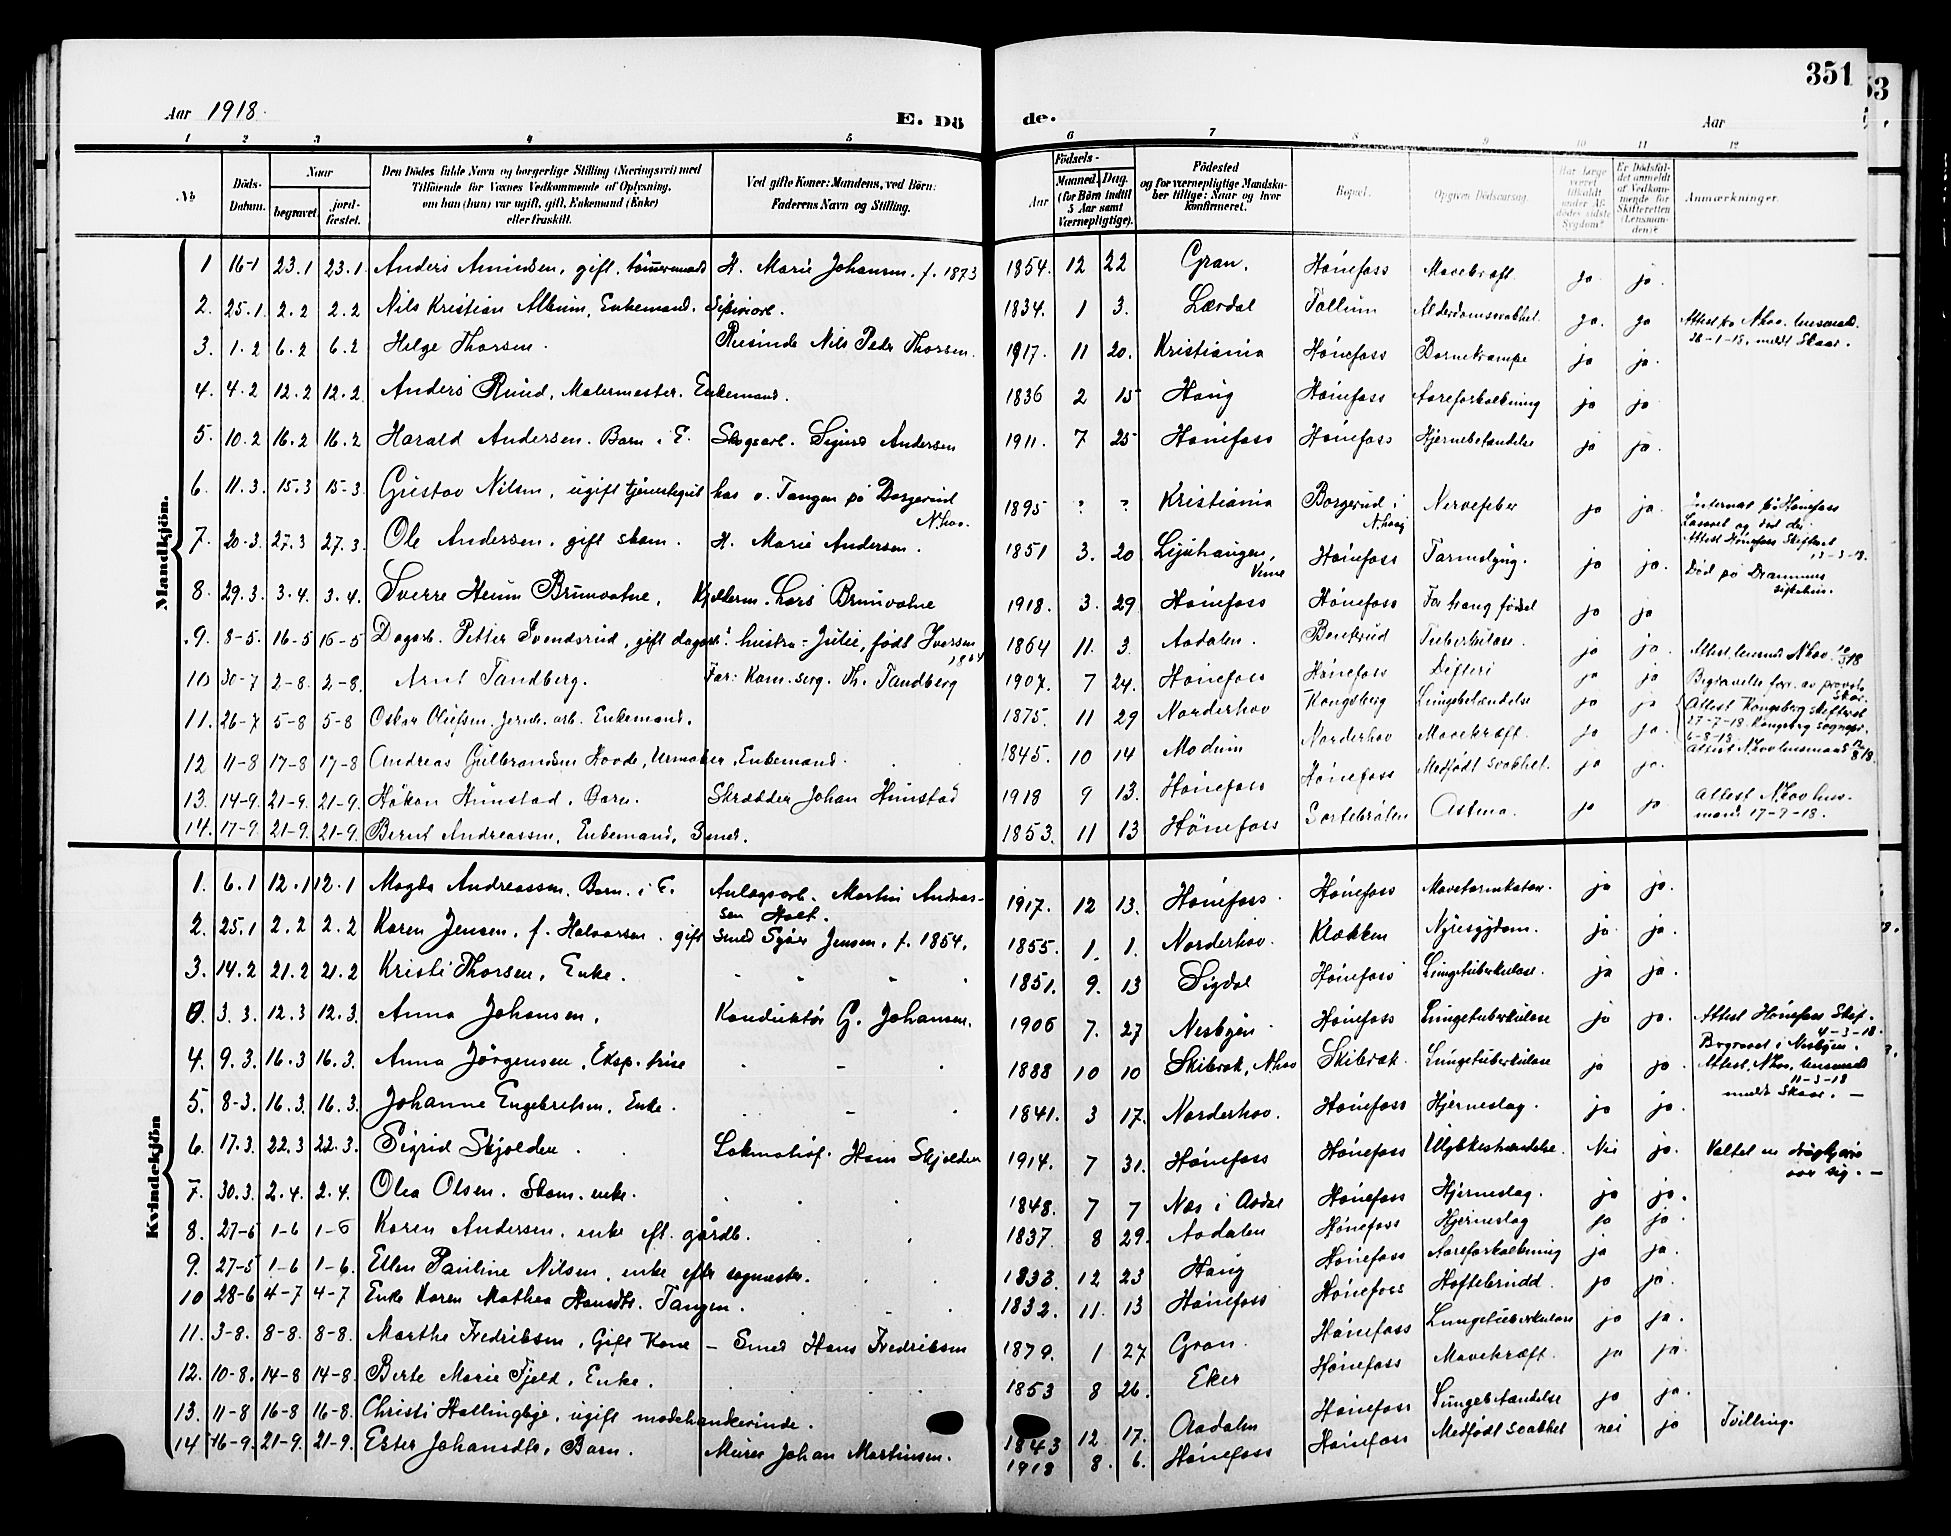 351
53
Aar 1918.
E. Dö
de.
Aar
1 2 3 4 5
6 7 8 9 10 11 12
No
Döds-Datum.
Naar
begravet.
jordfæstet.
Den Dödes fulde Navn og borgerlige Stilling (Næringsvei) med
Tilföiende for Voxnes Vedkommende af Oplysning,
om han (hun) var ugift, gift, Enkemand (Enke)
eller fraskilt.
Ved gifte Koner: Mandens, ved Börn:
Faderens Navn og Stilling.
Födsels-
Aar
Maaned. Dag.
(for Börn indtil
5 Aar samt
Værnepligtige).
Födested
og for værnepligtige Mandska-
ber tillige: Naar og hvor
konfirmeret.
Bopæl.
Opgiven Dödsaarsag.
Har Læge
været
tilkaldt
under Af-
dödes sidste
Sygdom?
Er Dödsfal-
det anmeldt
af Vedkom-
mende for
Skifteretten
(Lensman-
den)?
Anmærkninger.
Mandkjön.
1 16-1 23.1 23.1. Anders Amundsen, gift, tömmermand H. Marie Johansen. f. 1873 1854. 12 22 Gran. Hönefoss Mavekræft. ja ja.
2. 25.1. 2.2 2.2 Nils Kristian Album, Enkemand. 1834. 1 3. Lærdal Tollium Alderdomssvakhet. ja. ja Attest fra N.hov. lensmand. 28-1-18, meldt Skaar.
3. 1.2 6.2 6.2 Helge Thorsen. Nils Peder Thorsen. 1917. 11 20. Kristiania Hönefoss Barnekrampe ja ja.
4. 4.2 12.2 12.2 Anders Ruud, Malermester. Enkemand. 1836 2 15 Haug Hönefoss Aareforkalkning ja ja
5. 10.2 16.2 16.2 Harald Andersen. Barn i E. Skogsarb. Sigurd Andersen 1911. 7 25 Hönefoss Hönefoss Hjernebetændelse ja ja.
6. 11.3. 15.3 15-3. Gustav Nilsen, ugift tjenestegut hos v. Tangen på Borgerud N.hov. 1895 ? ? Kristiania Borgerud i N.hov Nervefeber ja ja. Internat på Hönefoss Lasaret og död der. Attest Hönefoss Skifteret 13-3-18.
7. 20-3. 27.3 27.3. Ole Andersen, gift skom. H. Marie Andersen. 1851 3. 20 Hönefoss Tarmslyng. ja ja. Död på Drammens sykehus.
8. 29.3. 3.4. 3.4. Sverre Heum Brunvatne, Lars Brunvatne 1918. 3. 29 Hönefoss Hönefoss For trang födsel ja ja
9. 8-5. 16-5 16-5 Dagarb. Petter Svendsrud, gift dagarb. hustru: Julie, födt Iversen 1864 1864 11. 3. Aadalen. Benterud Tuberkulose. ja ja. Attest lensmd N.hov. 10/5 18
10 30-7 2-8. 2-8. Arnt Tandberg. Far: Kom.serg. Th. Tandberg 1907. 7 24. Hönefoss Hönefoss Difteri ja ja Begravelse forr. av provst Skar.
11. 26-7 5-8 5-8 Oskar Olufsen. Jernb. arb. Enkemand. 1875. 11 29 Norderhov Kongsberg Lungebetændelse ja ja Attest Kongsberg skifteret 27-7-18. Kongsberg sognepr. 6-8-18.
12 11-8 17-8 17-8 Andreas Gulbrandsen Hovde, Urmaker Enkemand. 1845. 10 14 Modum Norderhov Mavekræft. ja ja. Attest N.hov lensmand 12/8 18.
13. 14-9. 21-9. 21-9. Håkon Hunstad, Barn. Skrædder Johan Hunstad 1918 9 13. Hönefoss Hönefoss Medfödt svakhet. ja ja.
14. 17-9. 21-9. 21-9. Bernt Andreassen, Enkemand, Smed. 1853. 11 13 Hönefoss Sortebråten Astma. ja ja Attest N.hov lensmand 17-9-18.
Kvindekjön
1. 6.1 12.1 12.1 Magda Andreassen. Barn i E. Anlægsarb. Martin Andreassen Holt. 1917. 12 13. Hönefoss. Hönefoss Mavetarmkatar. ja ja.
2. 25.1 2.2 2.2 Karen Jensen, f. Halvorsen. gift Smed Jensen. f. 1854. 1855. 1. 1. Norderhov. Klækken Nyresygdom. ja ja.
3. 14.2 21.2 21.2 Kristi Thorsen, Enke. 1851. 9. 13 Sigdal Hönefoss Lungetuberkulose. ja ja.
0. 3.3. 12.3 12.3. Anna Johansen. Konduktör G. Johansen. 1906 7. 27 Nesbyen. Hönefoss Lungetuberkulose ja ja. Attest Hönefoss Skif. 4-3-18. Begravet i Nesbyen.
4. 9.3. 16.3 16.3. Anna Jörgensen, Eksp. trise 1888 10 10 Skibræk, N.hov Skibræk. Lungetuberkulose ja ja. Attest. N.hov. lensmand 11-3-18 meldt Skaar. –
5. 8-3. 16.3. 16.3. Johanne Engebretsen. Enke. 1841. 3 17. Norderhov. Hönefoss Hjerneslag. ja ja.
6. 17.3. 22.3 22.3. Sigrid Skjolden Lokomotivf. Hans Skjolden 1914. 7 31. Hönefoss Hönefoss Ulykkeshændelse. Nei ja. Væltet en gryte over sig. –
7. 30.3. 2.4. 2.4. Olea Olsen. Skom. enke. 1848. 7 7 Næs i Aadal Hönefoss Hjerneslag. ja ja.
8. 27-5 1-6 1-6 Karen Andersen, enke eft. gårdb. 1837 8 29. Aadalen Hönefoss Hjerneslag ja ja.
9. 27-5 1-6 1-6. Ellen Pauline Nilsen, enke efter sagmester. 1833. 12 23 Haug Hönefoss Aareforkalkning ja ja.
10 28-6 4-7 4-7 Enke Karen Mathea Hansdtr. Tangen. 1832. 11. 13 Hönefoss Hönefoss Hoftebrudd. ja ja.
11. 3-8. 8-8. 8-8. Marthe Fredriksen, Gift Kone – Smed Hans Fredriksen 1879. 1 27 Gran. Hönefoss Lungetuberkulose ja ja.
12. 10-8. 14-8 14-8. Berte Marie Fjeld, Enke. 1853 8 26. Eker Hönefoss Mavekræft. ja ja.
13. 11-8 16-8 16-8. Christi Hallingbye, ugift motehandlerinde. 1843 12 17. Aadalen Hönefoss Lungebetændelse ja ja.
14 16-9. 21-9. 21-9. Ester Johansdtr, Barn. Murer Johan Martinsen. 1918 8. 6. Hönefoss Hönefoss Medfödt svakhet nei ja Tvilling.